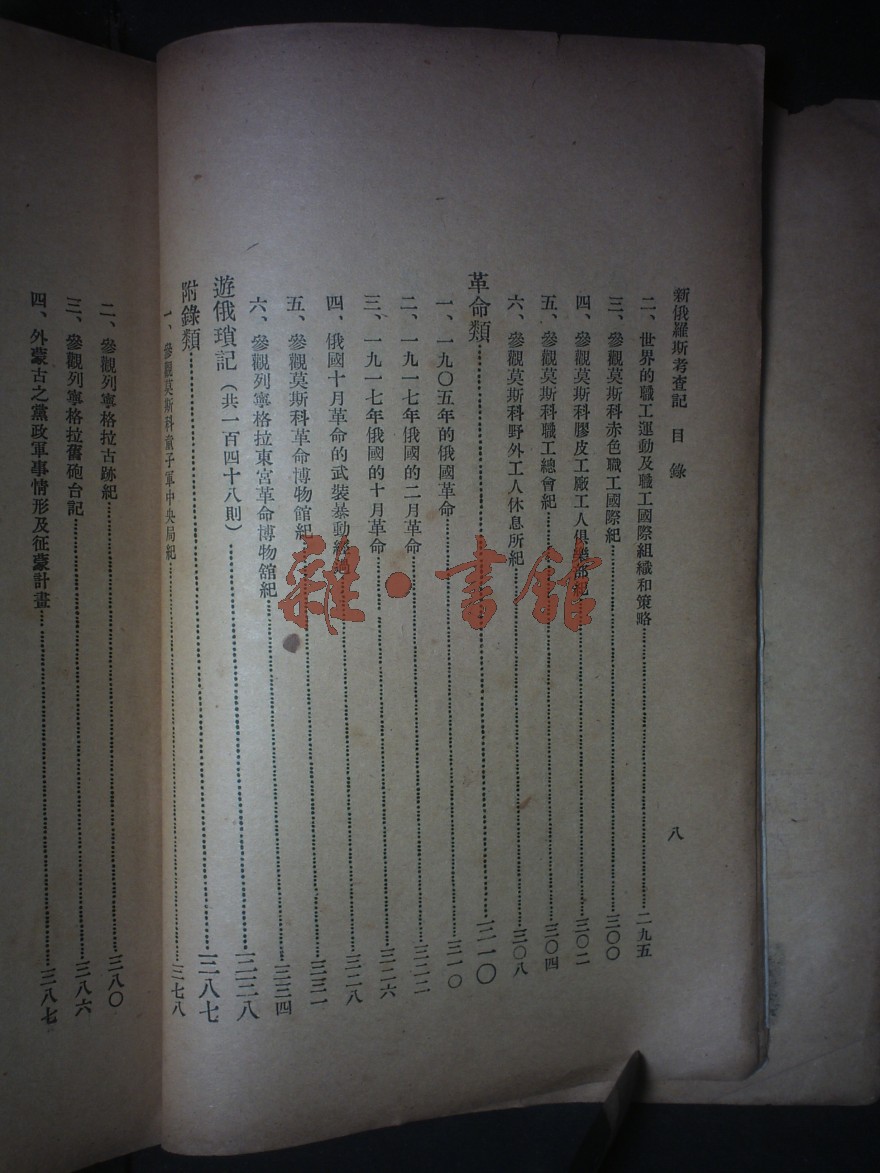 新俄羅斯考查記 目錄 八
二、世界的職工運動及職工國際組織和策略……二九五
三、參觀莫斯科赤色職工國際紀……三〇〇
四、參觀莫斯科膠皮工廠工人俱樂部紀……三〇二
五、參觀莫斯科職工總會紀……三〇四
六、參觀莫斯科野外工人休息所紀……三〇八
革命類……三一〇
一、一九〇五年的俄國革命……三一〇
二、一九一七年俄國的二月革命……三二二
三、一九一七年俄國的十月革命……三二六
四、俄國十月革命的武裝暴動經過……三二八
五、參觀莫斯科革命博物館紀……三三二
六、參觀列寧格拉東宮革命博物館紀……三三四
遊俄瑣記（共一百四十八則）……三三八
附錄類……三八七
一、參觀莫斯科童子軍中央局紀……三七八
二、參觀列寧格拉古跡紀……三八〇
三、參觀列寧格拉舊砲台記……三八六
四、外蒙古之黨政軍事情形及征蒙計畫……三八七
雜·書館